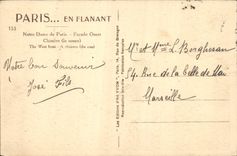 PARIS... EN FLANANT
153
Notre-Dame de Paris - Façade Ouest
Chimère (le soucı)
The West front - A chimera (the care)
Notre bon Souvenir
José Fils
Mr et Mme L. Borghesan
54 Rue de la Belle de Mai
Marseille